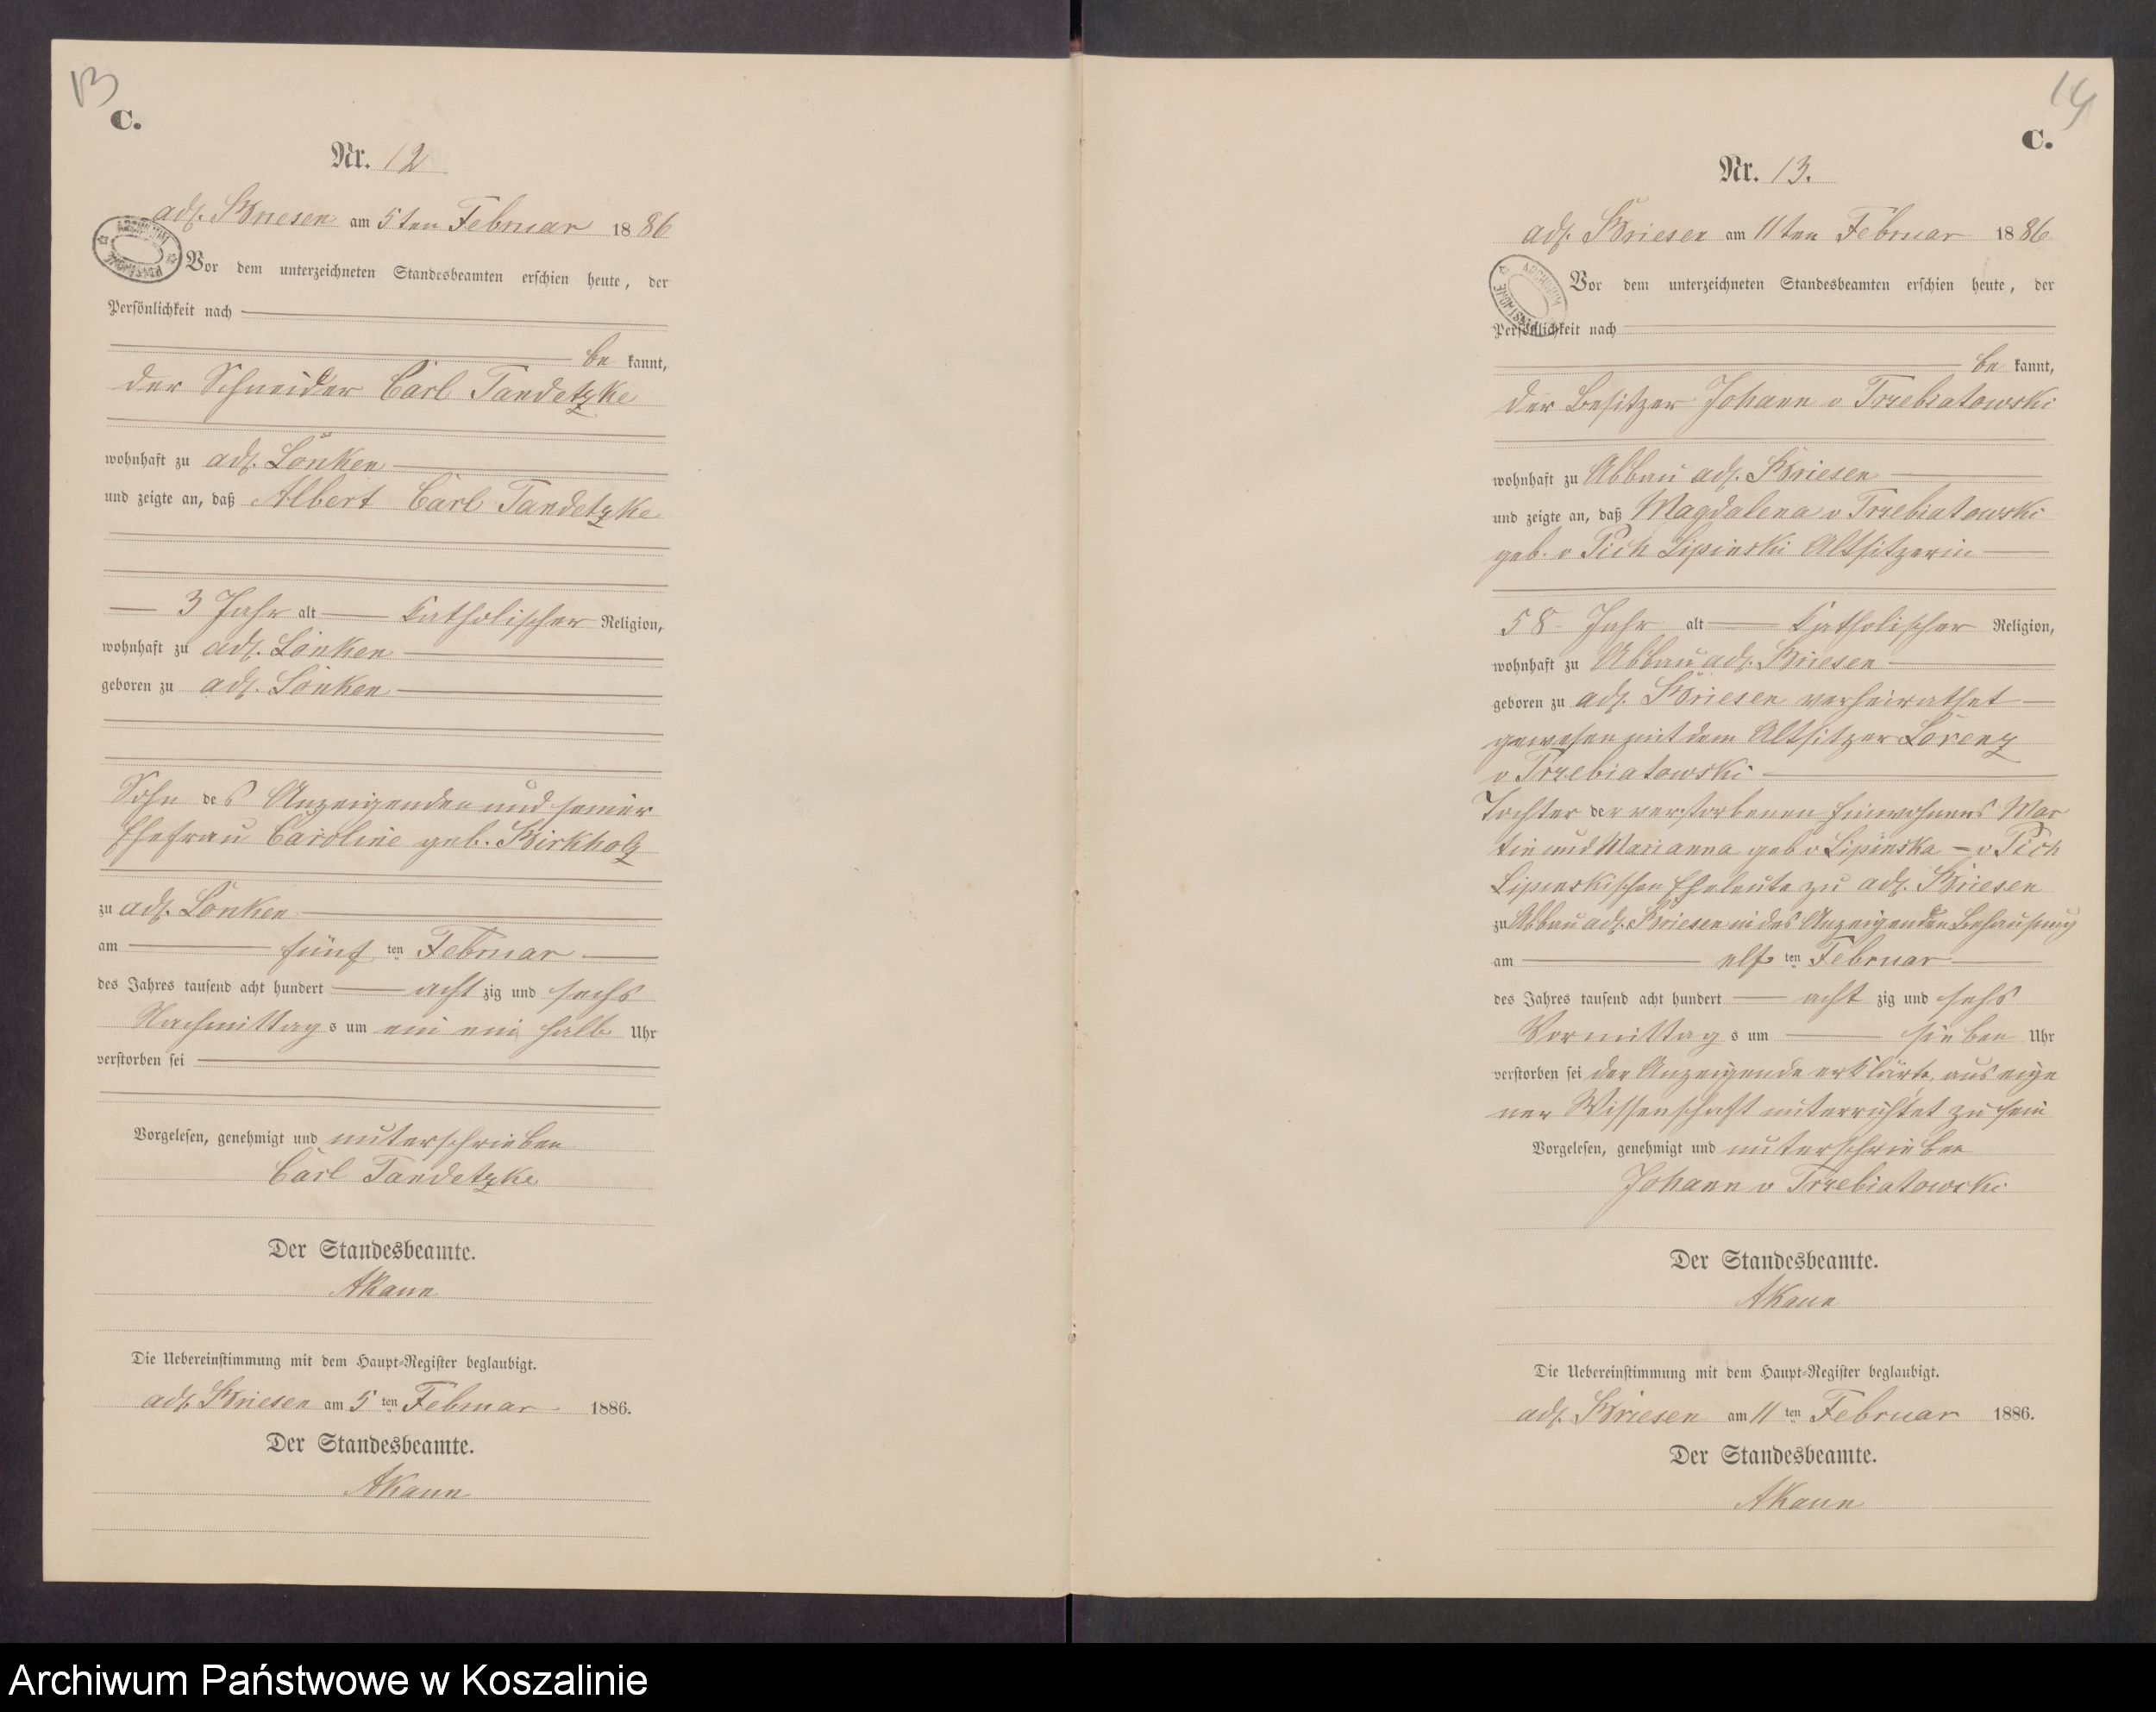 13
C.
Nr. 12
adl. Briesen am 5ten Februar 1886
ARCHIWUM PAŃSTWOWE
Vor dem unterzeichneten Standesbeamten erschien heute, der
Persönlichkeit nach
be kannt,
der Schneider Carl Tandetzke
wohnhaft zu adl. Lonken
und zeigte an, daß Albert Carl Tandetzke
3 Jahr alt katholischer Religion,
wohnhaft zu adl. Lonken
geboren zu adl. Lonken
Sohn des Anzeigenden und seiner
Ehefrau Caroline geb. Birkholz
zu adl. Lonken
am fünf ten Februar
des Jahres tausend acht hundert acht zig und sechs
Nachmittags um ein ein halb Uhr
verstorben sei
Vorgelesen, genehmigt und unterschrieben
Carl Tandetzke
Der Standesbeamte.
AKaun
Die Uebereinstimmung mit dem Haupt-Register beglaubigt.
adl. Briesen am 5 ten Februar 1886.
Der Standesbeamte.
AKaun
14
C.
Nr. 13.
adl. Briesen am 11ten Februar 1886
ARCHIWUM PAŃSTWOWE
Vor dem unterzeichneten Standesbeamten erschien heute, der
Persönlichkeit nach
be kannt,
der Besitzer Johann v Trzebiatowski
wohnhaft zu Abbau adl. Briesen
und zeigte an, daß Magdalena v Trzebiatowski
geb. v Pich Lipinski Altsitzerin
58 Jahr alt katholischer Religion,
wohnhaft zu Abbau adl. Briesen
geboren zu adl. Briesen verheirathet
gewesen mit dem Altsitzer Lorenz
v Trzebiatowski
Tochter der verstorbenen Einwohners Mar
tin und Marianna geb v Lipinska – v Pich
Lipinskischen Eheleute zu adl. Briesen
zu Abbau adl. Briesen in des Anzeigenden Behausung
am elf ten Februar
des Jahres tausend acht hundert acht zig und sechs
Vormittags um sieben Uhr
verstorben sei der Anzeigende erklärte, aus eige
ner Wissenschaft unterrichtet zu sein
Vorgelesen, genehmigt und unterschrieben
Johann v Trzebiatowski
Der Standesbeamte.
AKaun
Die Uebereinstimmung mit dem Haupt-Register beglaubigt.
adl. Briesen am 11 ten Februar 1886.
Der Standesbeamte.
AKaun
Archiwum Państwowe w Koszalinie